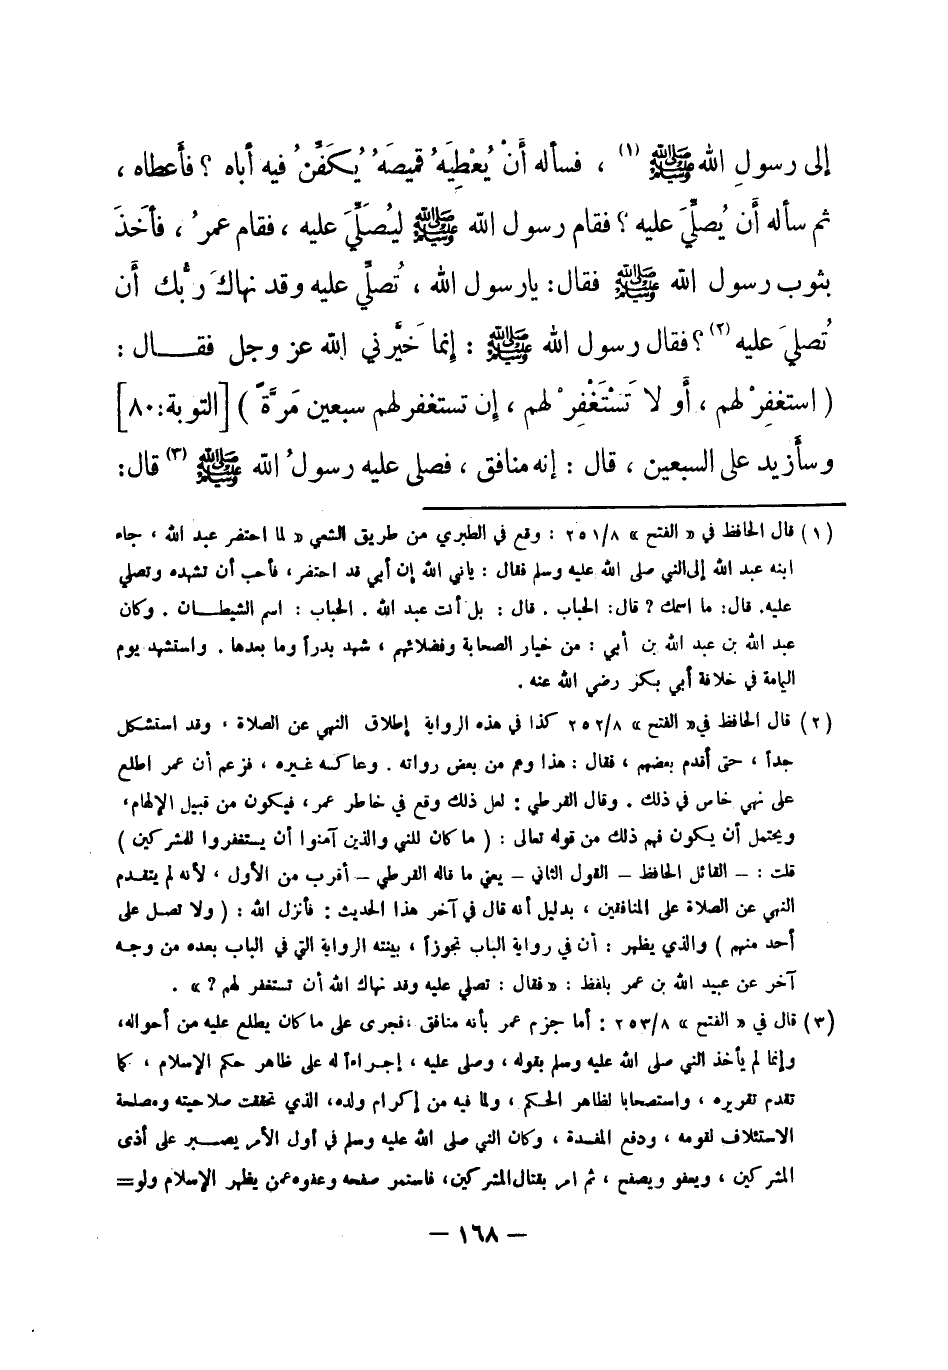 إلى رسولِ الله ﷺ (١) ، فسأله أَنْ يُعْطِيَهُ قميصَهُ يُكَفِّنُ فيه أباه ؟ فأَعطاه ،
ثم سأله أَن يُصلِّيَ عليه ؟ فقام رسول الله ﷺ ليُصَلِّيَ عليه ، فقام عمرُ ، فأَخَذَ
بثوب رسول الله ﷺ فقال : يارسول الله ، تُصلِّي عليه وقد نهاكَ ربُّك أَن
تُصليَ عليه (٢) ؟ فقال رسول الله ﷺ : إِنما خَيَّرني الله عز وجل فقـــال :
( استغفِرْ لهم ، أَو لا تَسْتَغْفِرْ لهم ، إِن تستغفر لهم سبعين مَرَّةً ) [التوبة:٨٠]
وسأَزيد على السبعين ، قال : إنه منافق ، فصلى عليه رسولُ الله ﷺ (٣) قال:
(١) قال الحافظ في « الفتح » ٢٥١/٨ : وقع في الطبري من طريق الشعبي « لما احتضر عبد الله ، جاء
ابنه عبد الله إلى النبي صلى الله عليه وسلم فقال : يانبي الله إن أبي قد احتضر ، فأحب أن تشهده وتصلي
عليه. قال: ما اسمك ? قال: الحباب . قال : بل أنت عبد الله . الحباب : اسم الشيطــان . وكان
عبد الله بن عبد الله بن أبي : من خيار الصحابة وفضلائهم ، شهد بدراً وما بعدها . واستشهد يوم
اليمامة في خلافة أبي بكر رضي الله عنه .
(٢) قال الحافظ في « الفتح » ٢٥٢/٨ كذا في هذه الرواية إطلاق النهي عن الصلاة ، وقد استشكل
جداً ، حتى أقدم بعضهم ، فقال : هذا وهم من بعض رواته . وعاكسه غيره ، فزعم أن عمر اطلع
على نهي خاص في ذلك . وقال القرطبي : لعل ذلك وقع في خاطر عمر ، فيكون من قبيل الإلهام ،
ويحتمل أن يكون فهم ذلك من قوله تعالى : ( ما كان للنبي والذين آمنوا أن يستغفروا للمشركين )
قلت : – القائل الحافظ – القول الثاني – يعني ما قاله القرطبي – أقرب من الأول ، لأنه لم يتقــدم
النهي عن الصلاة على المنافقين ، بدليل أنه قال في آخر هذا الحديث : فأنزل الله : ( ولا تصل على
أحد منهم ) والذي يظهر : أن في رواية الباب تجوزاً ، بينته الرواية التي في الباب بعده من وجــه
آخر عن عبيد الله بن عمر بلفظ : « فقال : تصلي عليه وقد نهاك الله أن تستغفر لهم ? » .
(٣) قال في « الفتح » ٢٥٣/٨ : أما جزم عمر بأنه منافق ، فجرى على ما كان يطلع عليه من أحواله،
وإنما لم يأخذ النبي صلى الله عليه وسلم بقوله ، وصلى عليه ، إجــراءاً له على ظاهر حكم الإسلام ، كما
تقدم تقريره ، واستصحابا لظاهر الحكم ، ولما فيه من إكرام ولده، الذي تحققت صلاحيته ومصلحة
الاستئلاف لقومه ، ودفع المفسدة ، وكان النبي صلى الله عليه وسلم في أول الأمر يصــبر على أذى
المشركين ، ويعفو ويصفح ، ثم امر بقتال المشركين، فاستمر صفحه وعفوه عمن يظهر الإسلام ولو=
– ١٦٨ –